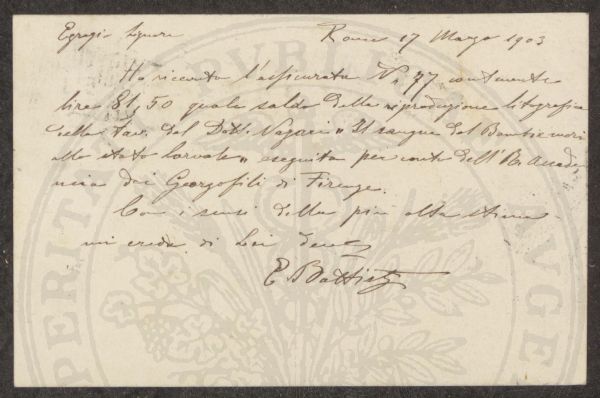 Egregio Signore Roma 17 Marzo 1903
Ho ricevuta l'assicurata N. 77 contenente
lire 81,50 quale saldo della riproduzione litografica
della Tav. del Dott. " Il sangue del Bombix mori
allo stato larvale " eseguita per conto dell'R. Accade
mia dei Georgofili di Firenze.
Con i sensi della più alta stima
mi creda di Lei
E Battist
PVBLICAE
PERITATI AVGE